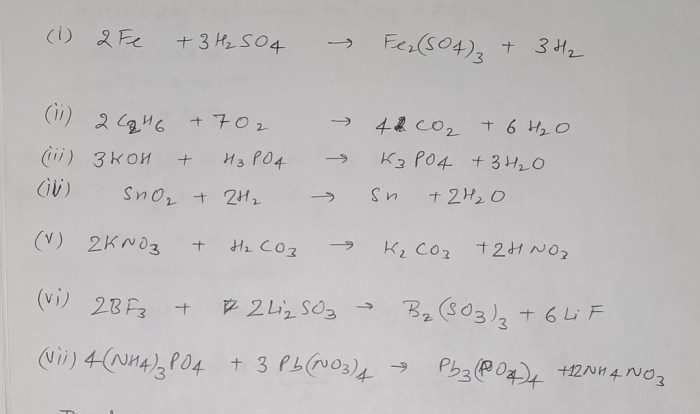 (i) 2Fe + 3H₂SO₄ → Fe₂(SO₄)₃ + 3H₂
(ii) 2C₂H₆ + 7O₂ → 4CO₂ + 6H₂O
(iii) 3KOH + H₃PO₄ → K₃PO₄ + 3H₂O
(iv) SnO₂ + 2H₂ → Sn + 2H₂O
(v) 2KNO₃ + H₂CO₃ → K₂CO₃ + 2HNO₃
(vi) 2BF₃ + 2Li₂SO₃ → B₂(SO₃)₃ + 6LiF
(vii) 4(NH₄)₃PO₄ + 3Pb(NO₃)₄ → Pb₃(PO₄)₄ + 12NH₄NO₃